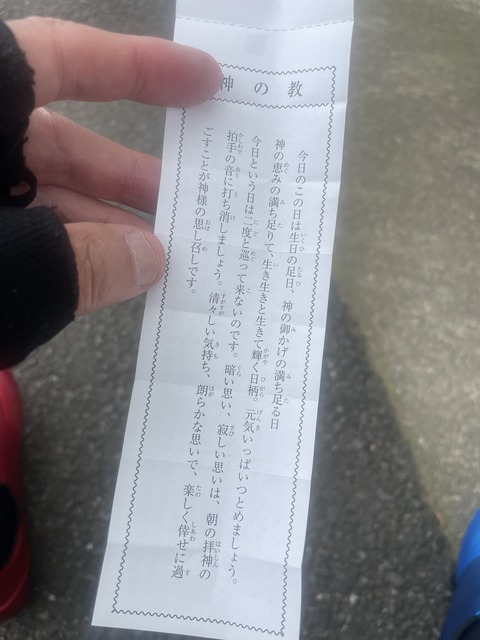 神の教
今日のこの日は生日の足日、神の御かげの満ち足る日
神の恵みの満ち足りて、生き生きと生きて輝く日柄。元気いっぱいつとめましょう。
今日という日は二度と巡って来ないのです。暗い思い、寂しい思いは、朝の拝神の
拍手の音に打ち消しましょう。清々しい気持ち、朗らかな思いで、楽しく倖せに過
ごすことが神様の思し召しです。